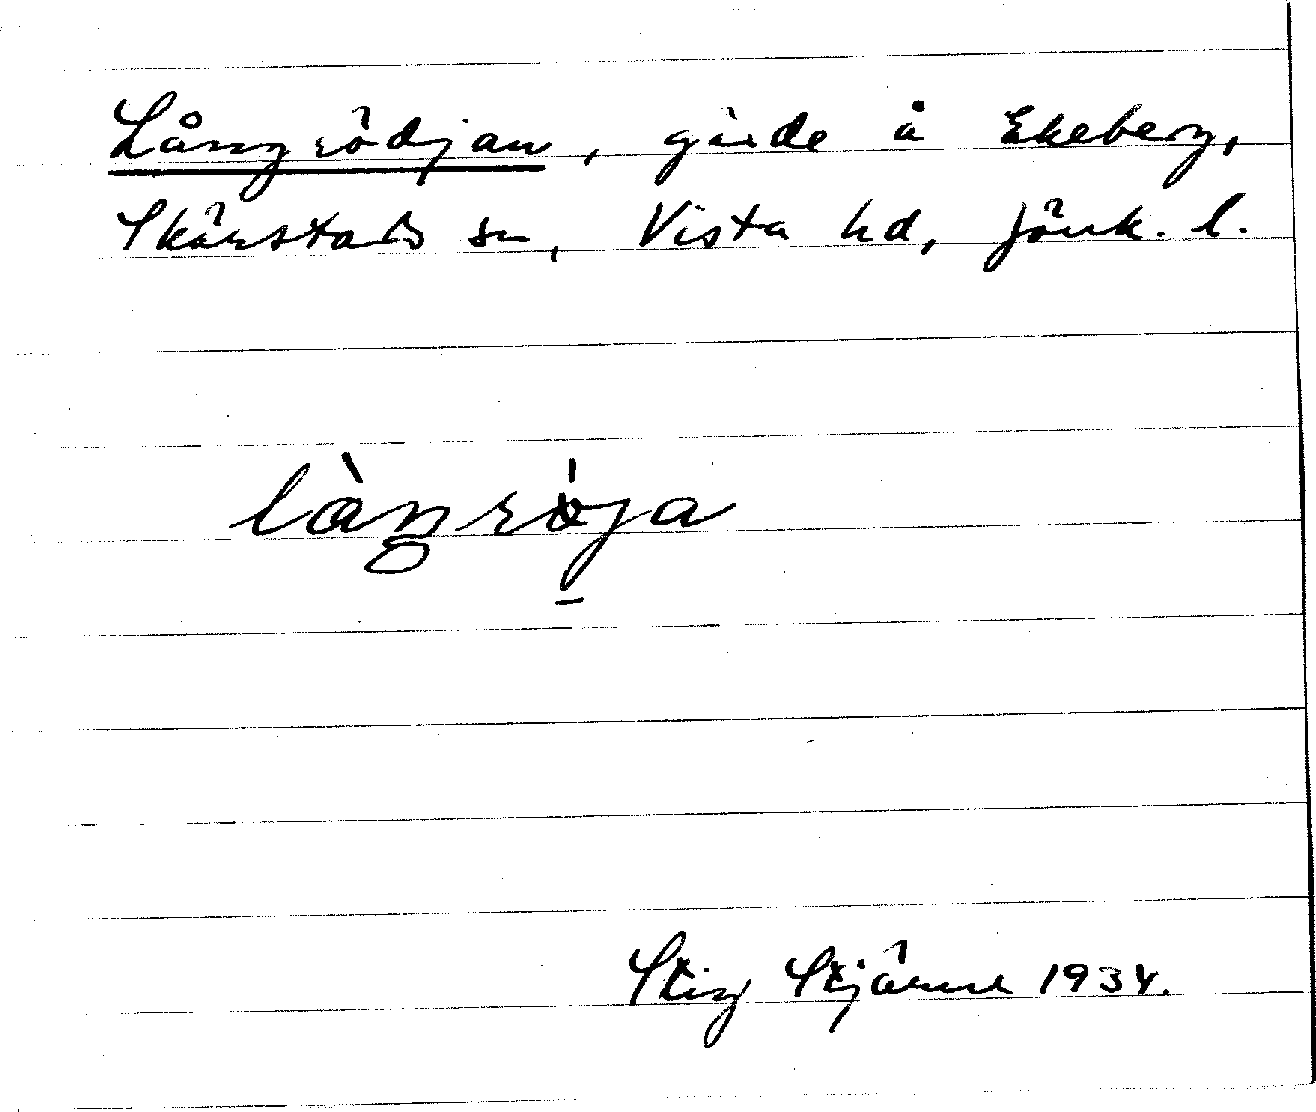 Långrödjan, gärde å Ekeberg,
Skärstads sn, Vista hd, Jönk. l.
làŋrö́ja
Stig Stjärne 1934.